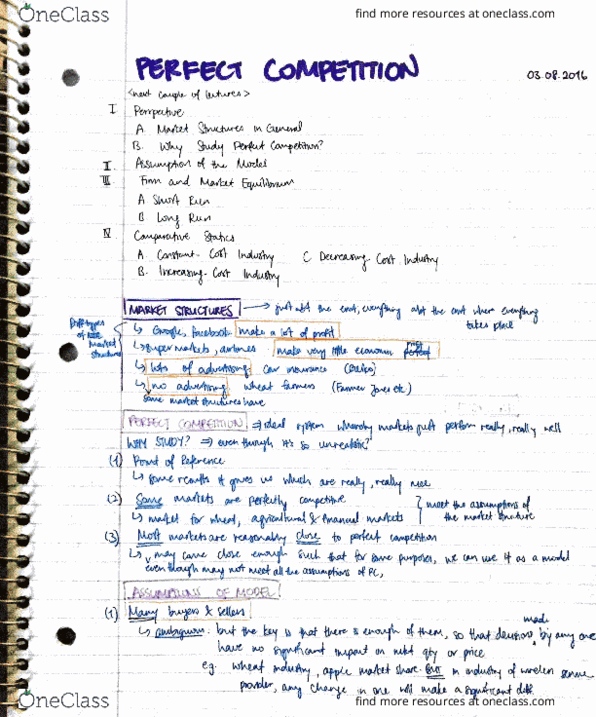 OneClass
find more resources at oneclass.com
PERFECT COMPETITION
03.08.2016
<next couple of lectures>
I Perspective
A. Market Structures in General
B. Why Study Perfect Competition?
II. Assumption of the Model
III Firm and Market Equilibrium
A Short Run
B Long Run
IV Comparative Statics
A. Constant-Cost Industry C Decreasing-Cost Industry
B. Increasing-Cost Industry
MARKET STRUCTURES → just abt the cost, everything abt the cost where everything takes place
Diff types of Market structures
↳ Google, Facebook make a lot of profit
↳ supermarkets, airlines make very little economic profit
↳ lots of advertising car insurance (Geico)
↳ no advertising wheat farmers (Farmer Jones etc)
some market structures have
PERFECT COMPETITION ⇒ ideal system whereby markets just perform really, really well
WHY STUDY? ⇒ even though it's so unrealistic?
(1) Point of Reference
↳ some results it gives us which are really, really nice
(2) Some markets are perfectly competitive
↳ market for wheat, agricultural & financial markets } meet the assumptions of the market structure
(3) Most markets are reasonably close to perfect competition
↳ may come close enough such that for some purposes, we can use it as a model
even though may not meet all the assumptions of PC,
ASSUMPTIONS OF MODEL
(1) Many buyers & sellers
↳ ambiguous. but the key is that there is enough of them, so that decisions made by any one
have no significant impact on mkt qty or price.
eg. wheat industry, apple market share. BUT in industry of wireless service
provider, any change in one will make a significant diff.
OneClass
find more resources at oneclass.com